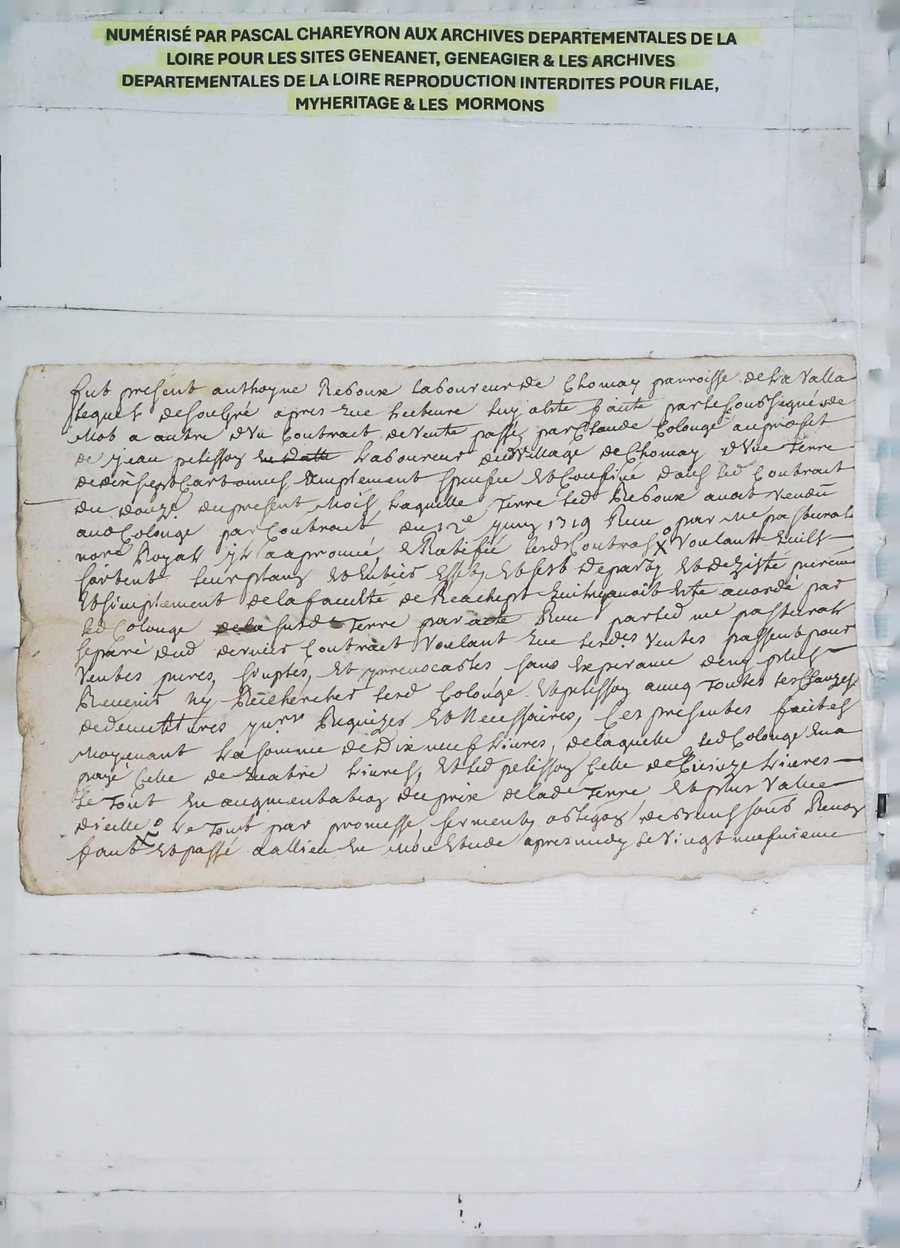 NUMÉRISÉ PAR PASCAL CHAREYRON AUX ARCHIVES DEPARTEMENTALES DE LA
LOIRE POUR LES SITES GENEANET, GENEAGIER & LES ARCHIVES
DEPARTEMENTALES DE LA LOIRE REPRODUCTION INTERDITES POUR FILAE,
MYHERITAGE & LES MORMONS
fut present anthoyne Reboux laboureur de Chomay parroisse de la Valla
lequel de son gré apres que lecture luy a esté faite par le
Mot a autre d'Vn Contract de Vente passé par Claude Colonge au profit
de jean pelissoy laboureur dud Village de Chomay d'Vne Terre
de dix sept Cartonnes Emplement speciffiée Et Confinée dans led Contract
du douze du present Mois laquelle Terre led Reboux avoit Vendu
aud Colonge par Contract du 12e 1719 Receu par Me pasturat
nore Royal il a aprouvé & Ratiffié lesd Contracts Voulant quils
sortent leur plain Et Entier effet Et s'est departy Et dezisté purem
Et simplement de la faculté de Reachept qui luy avoit esté acordé par
led Colonge sur lad Terre par acte Receu par led me pasturat
separé dud dernier Contract Voulant que lesdes Ventes passent pour
Ventes pures, simples, Et yrrevocables sans Esperance den plus
Revenir ny Rechercher lesd Colonge Et pelissoy avec Toutes les Clauzes
de devestitures Requizes Et Necessaires, Ces presentes faites
Moyenant la somme de Dix neuf livres, de laquelle led Colonge En a
payé Celle de quatre livres, Et led pelissoy Celle de quinze livres
le Tout En augmentation du prix de lade Terre Et plus Value
d'icelle le Tout par promesse, serment, obligaõn
Et passé a allieu En Mon Etude apres midy le Vingt neufvieme